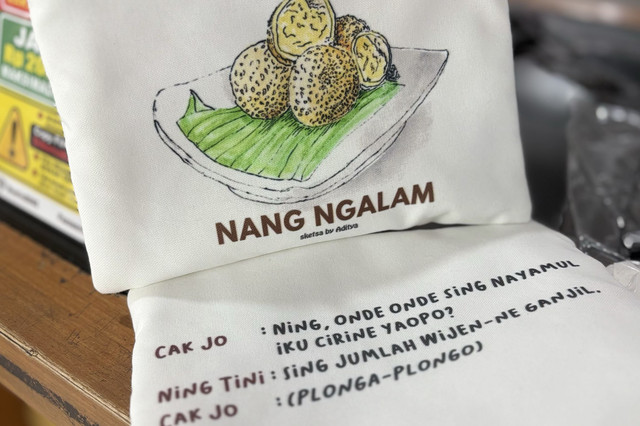 JA
Rp 20
NANG NGALAM
sketsa by Aditya
CAK JO : NING, ONDE ONDE SING NAYAMUL
IKU CIRINE YAOPO?
NING TINI : SING JUMLAH WIJEN-NE GANJIL.
CAK JO : (PLONGA-PLONGO)